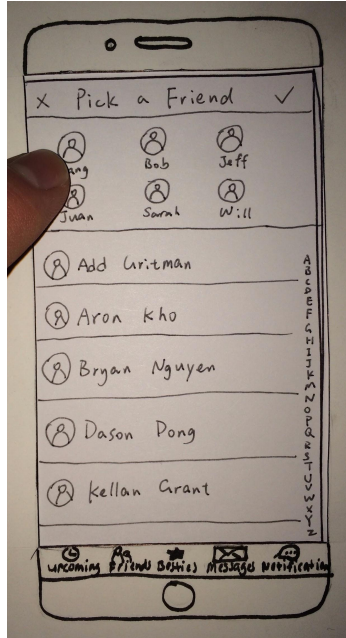 X Pick a Friend ✓
ang Bob Jeff
Juan Sarah Will
Add Uritman
Aron Kho
Bryan Nguyen
Dason Dong
Kellan Grant
A
B
C
D
E
F
G
H
I
J
K
M
N
O
P
Q
R
S
T
U
V
W
X
Y
Z
upcoming Friends Besties Messages Notification